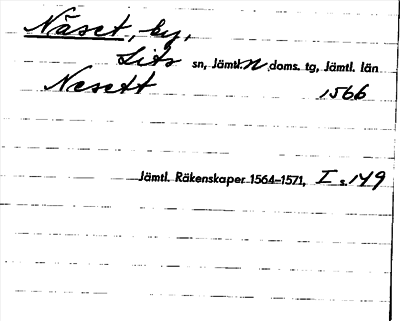 Näset, by,
Lits sn, Jämtl. n doms. tg, Jämtl. län
Nesett 1566
Jämtl. Räkenskaper 1564–1571, I s. 149